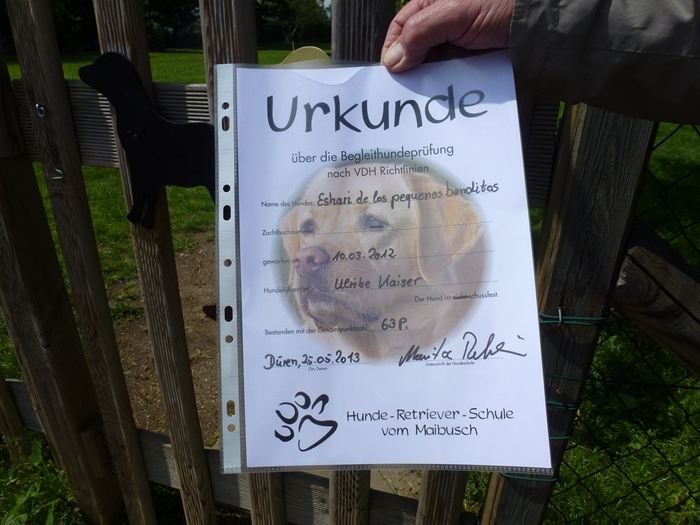 Urkunde
über die Begleithundeprüfung
nach VDH Richtlinien
Name des Hundes: Eshari de los pequenos banditos
Zuchtbuchnummer:
geworfen am: 10.03.2012
Hundeführer/in: Ulrike Kaiser
Der Hund ist nicht schussfest.
Bestanden mit der Gesamtpunktzahl: 63 P.
Düren, 25.05.2013
Ort, Datum
Unterschrift der Hundeschule
Hunde-Retriever-Schule
vom Maibusch